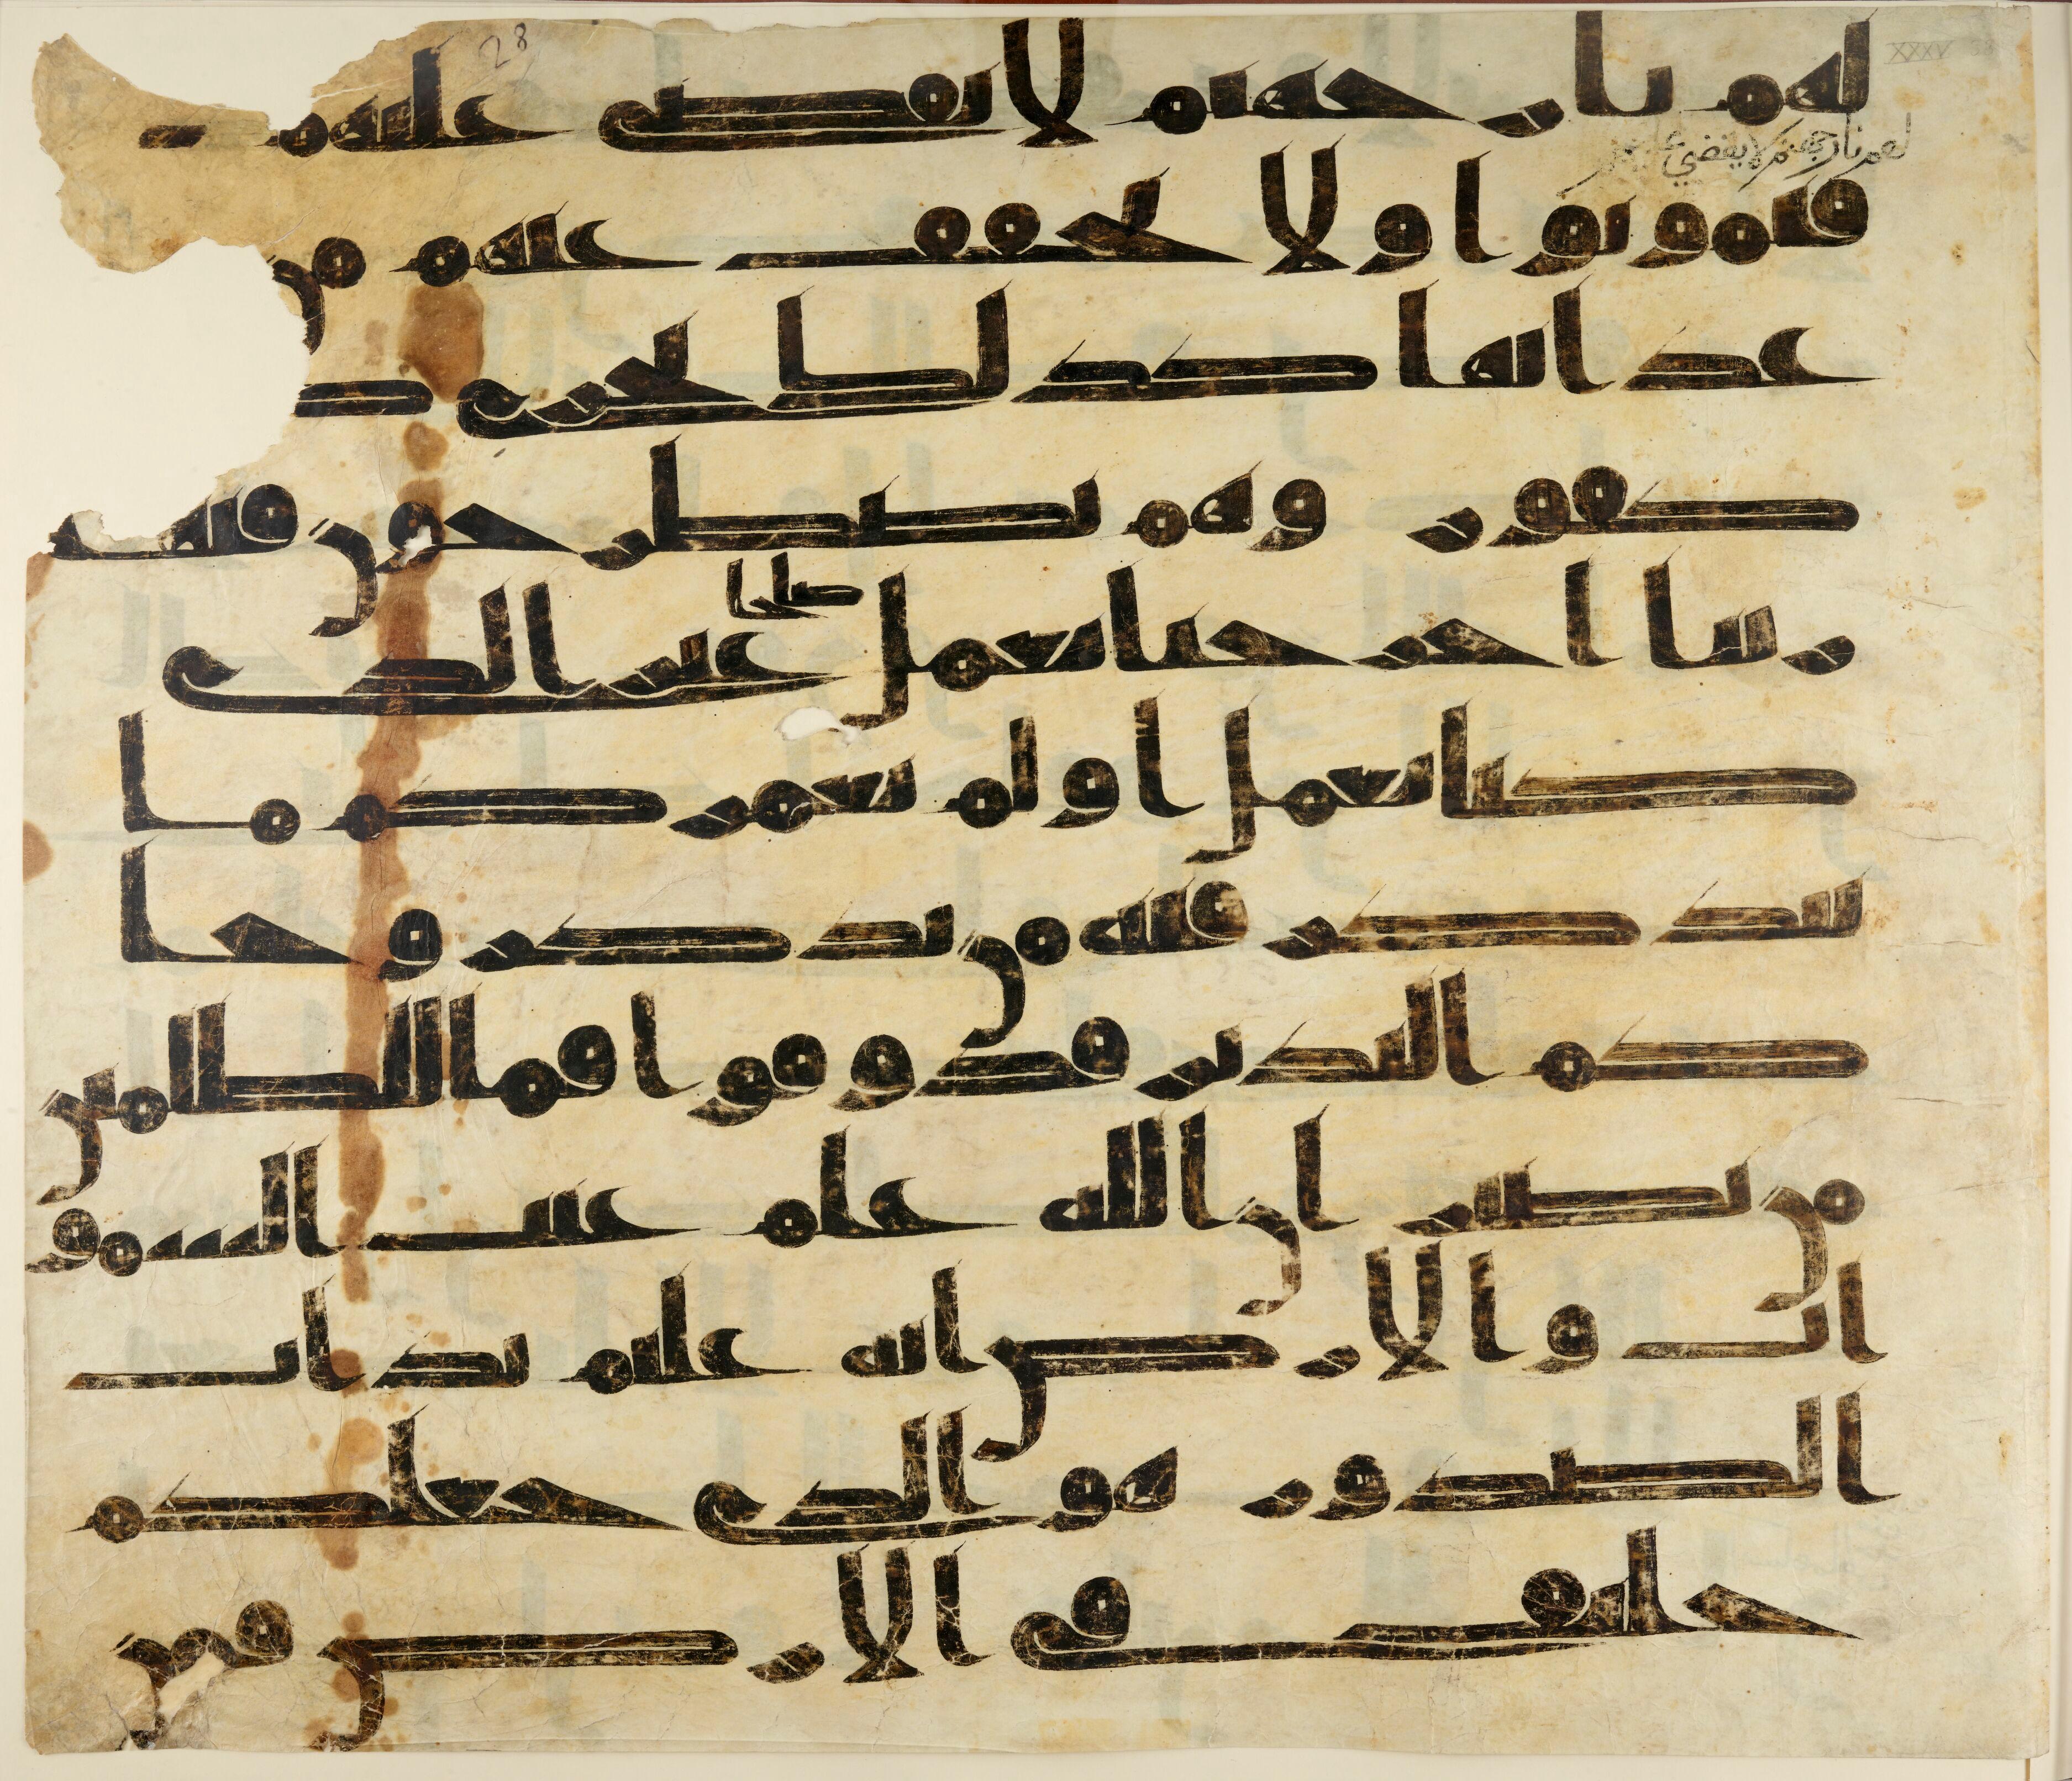 28
XXXV
لهم نار جهنم لا يقضى عليهم
لهم نار جهنم لا يقضي
فيموتوا ولا يخفف عنهم من
عذابها كذلك نجزى
كفور وهم يصطرخون فيها
صلحا
ربنا اخرجنا نعمل غير الذى
كنا نعمل اولم نعمركم ما
يتذكر فيه من تذكر وجا
كم النذير فذوقوا فما للظلمين
من نصير ان الله علم غيب السمو
ات والارض انه عليم بذات
الصدور هو الذى جعلكم
خلئف فى الارض فمن